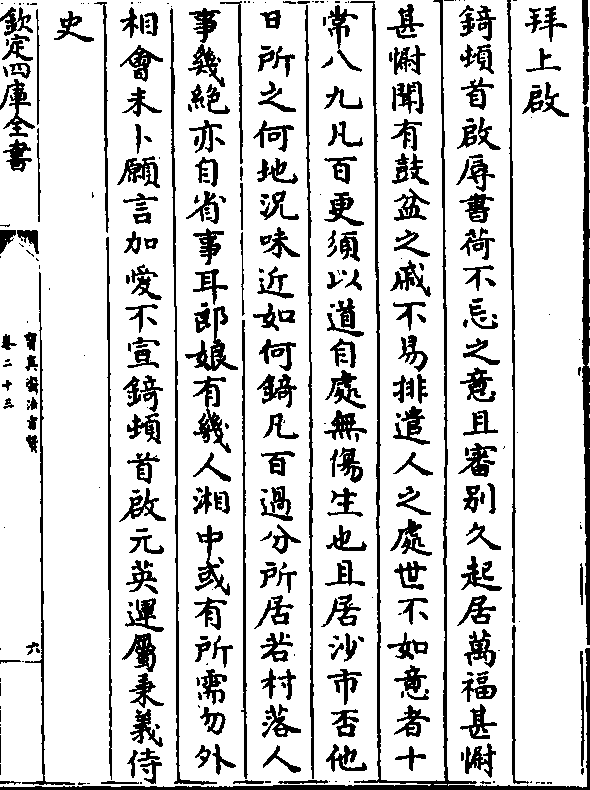 拜上啟
錡頓首啟辱書荷不忘之意且審别久起居萬福甚慰
甚慰聞有鼓盆之戚不易排遣人之處世不如意者十
常八九凡百更須以道自處無傷生也且居沙市否他
日所之何地況味近如何錡凡百過分所居若村落人
事幾絶亦自省事耳郎娘有幾人湘中或有所需勿外
相會未卜願言加愛不宣錡頓首啟元英運屬秉義侍
史
欽定四庫全書
寶真齋法書贊
卷二十三
六